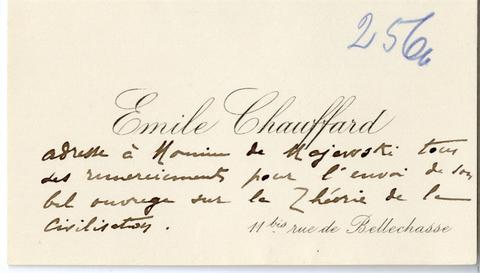 256a
Emile Chauffard
adresse à Monsieur de Majewski tous
ses remerciements pour l'envoi de son
bel ouvrage sur la Théorie de la
Civilisation.
11bis rue de Bellechasse